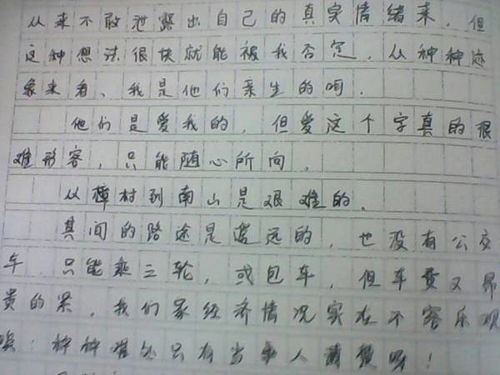 从来不敢泄露出自己的真实情绪来，但
这种想法很快就能被我否定，从种种迹
象来看、我是他们亲生的啊．
他们是爱我的，但爱这个字真的很
难形容，只能随心所向．
从樟村到南山是艰难的．
其间的路途是遥远的，也没有公交
车．只能乘三轮，或包车，但车费又昂
贵的累，我们家经济情况实在不容乐观
唉！种种难处只有当事人 呀！